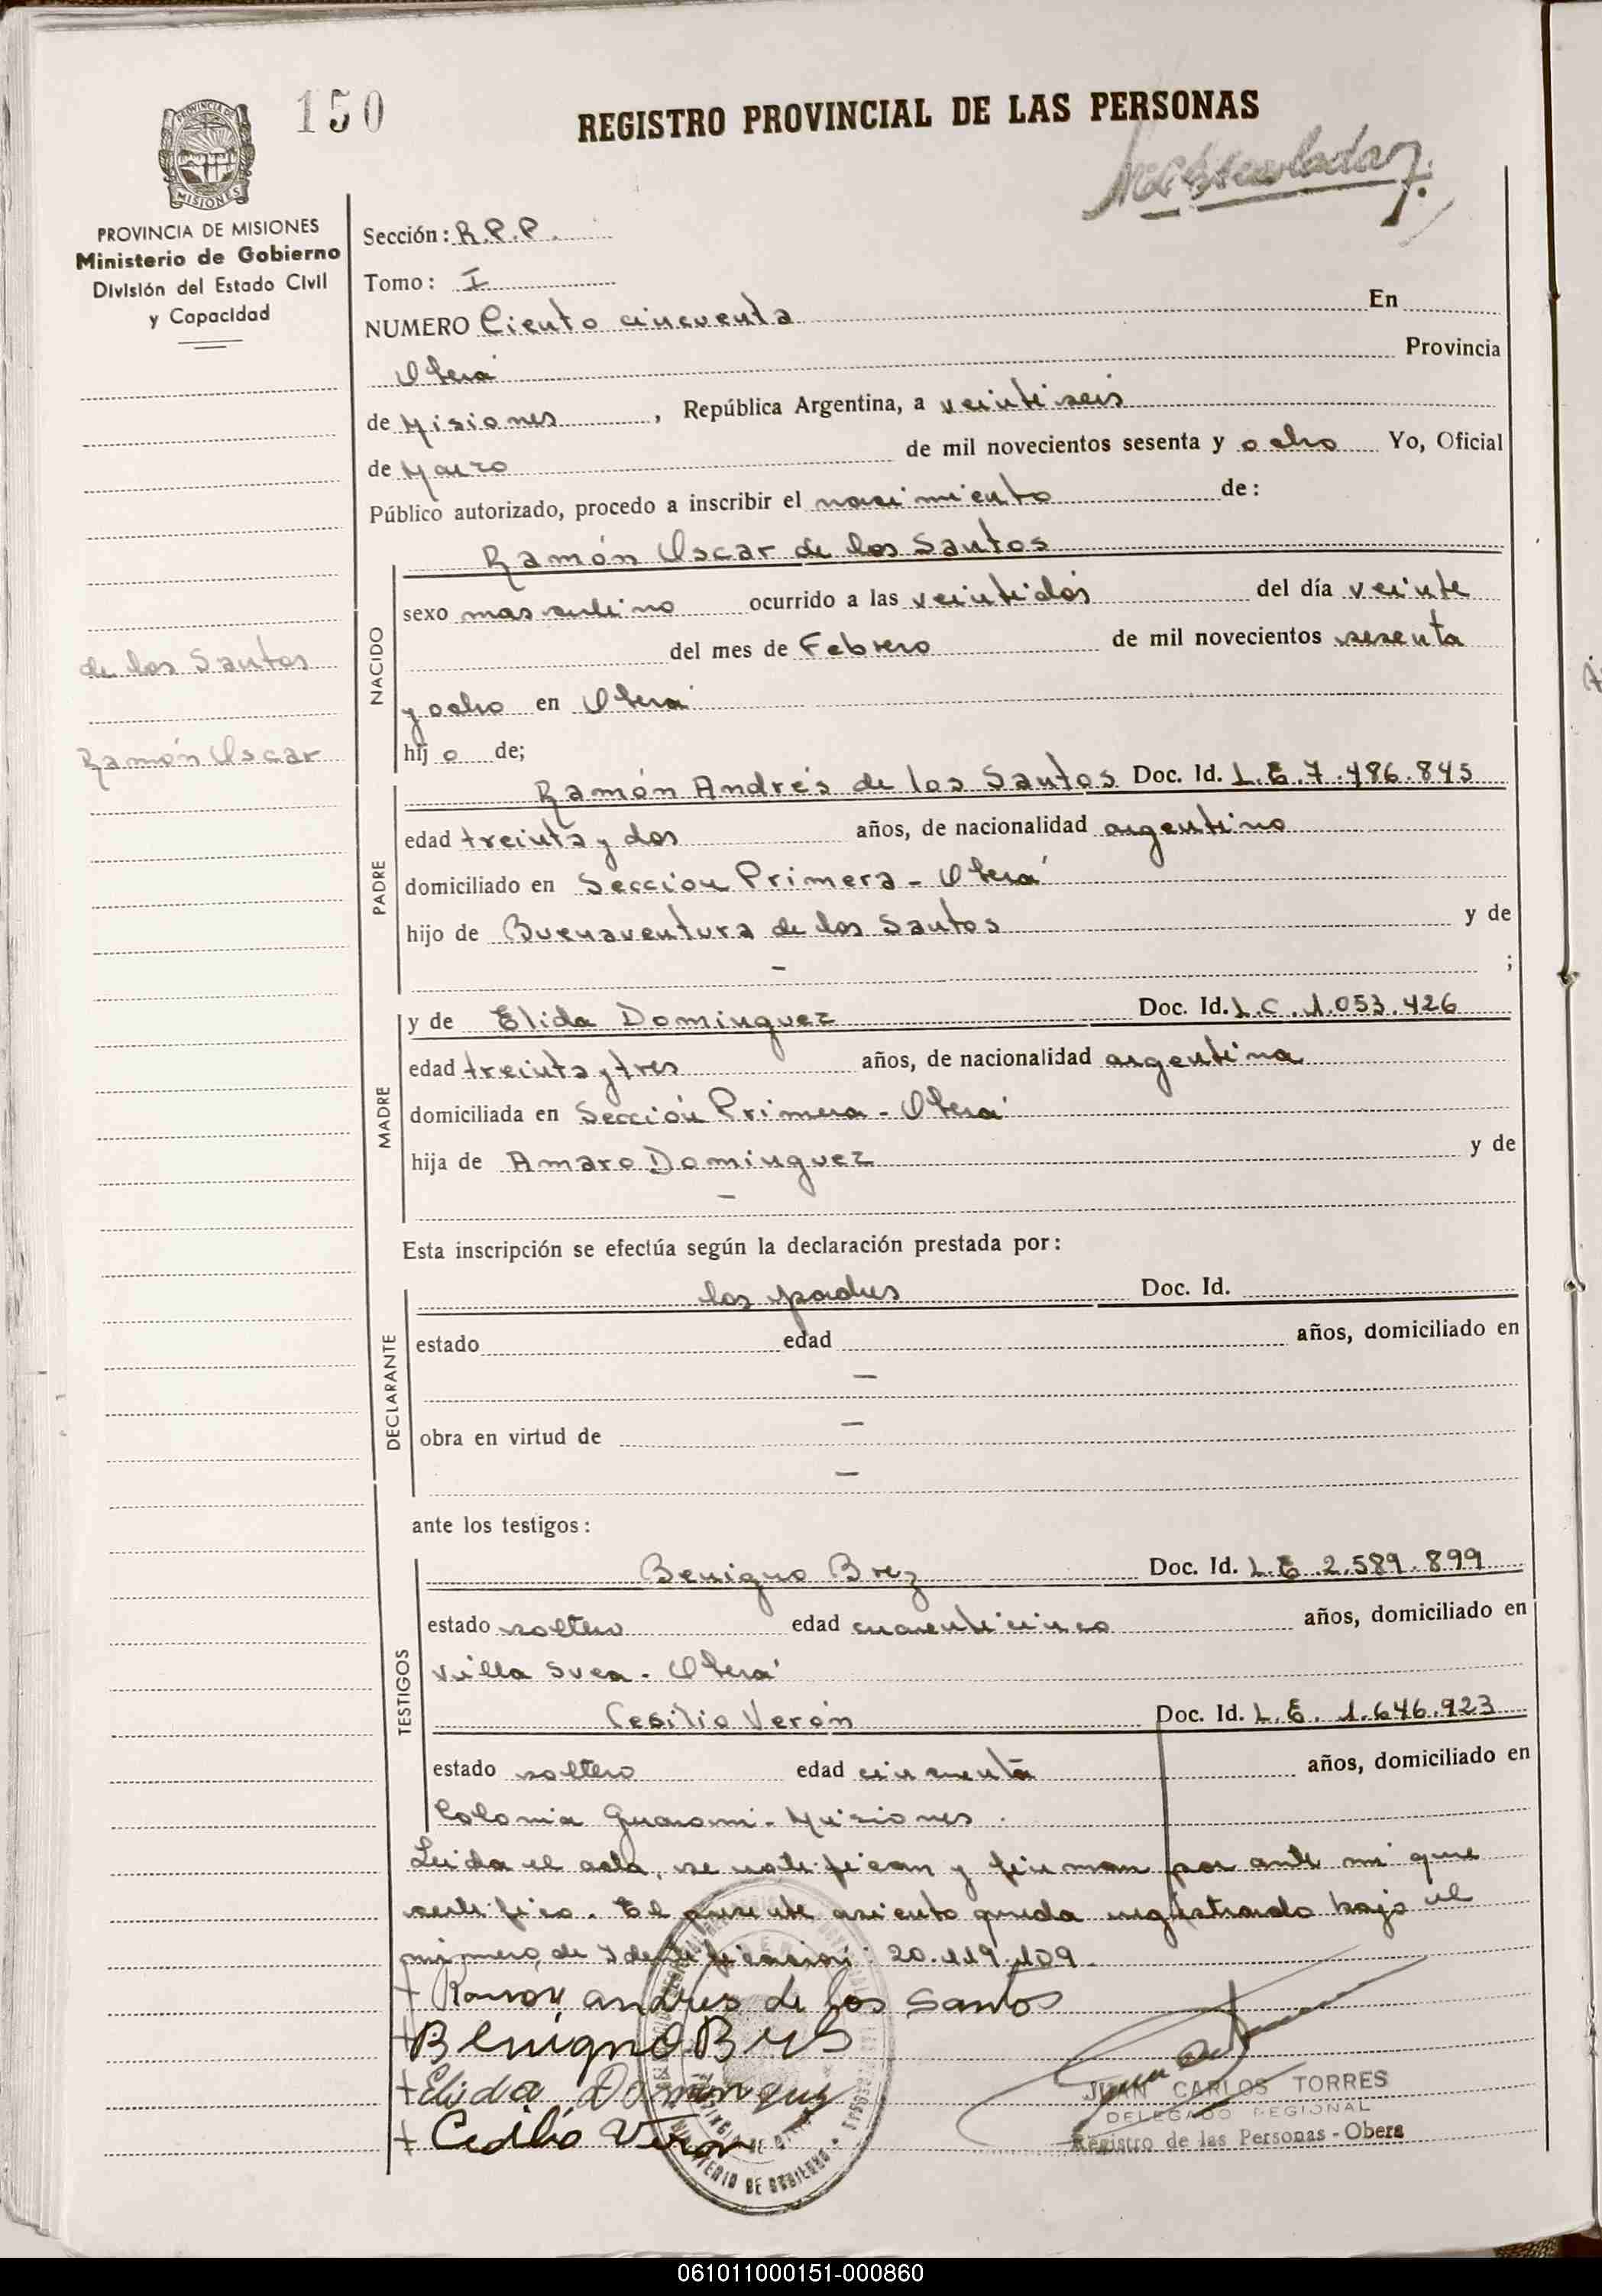 150
REGISTRO PROVINCIAL DE LAS PERSONAS
PROVINCIA DE MISIONES
Ministerio de Gobierno
División del Estado Civil
y Capacidad
Sección: R.P.P.
Tomo: I
NUMERO Ciento cincuenta En
Oberá Provincia
de Misiones, República Argentina, a veintiseis
de Marzo de mil novecientos sesenta y ocho Yo, Oficial
Público autorizado, procedo a inscribir el nacimiento de:
Ramón Oscar de los Santos
NACIDO
sexo masculino ocurrido a las veintidós del día veinte
del mes de Febrero de mil novecientos sesenta
y ocho en Oberá
hijo de;
de los Santos
Ramón Oscar
PADRE
Ramón Andrés de los Santos Doc. Id. L.E.7.486.845
edad treinta y dos años, de nacionalidad argentino
domiciliado en Sección Primera - Oberá
hijo de Buenaventura de los Santos y de
- ;
MADRE
y de Elida Dominguez Doc. Id. L.C.1.053.426
edad treinta y tres años, de nacionalidad argentina
domiciliada en Sección Primera - Oberá
hija de Amaro Dominguez y de
-
Esta inscripción se efectúa según la declaración prestada por:
DECLARANTE
los padres Doc. Id.
estado edad años, domiciliado en
-
obra en virtud de -
-
ante los testigos:
TESTIGOS
Benigno Brez Doc. Id. L.E.2.589.899
estado soltero edad cuarenticinco años, domiciliado en
Villa Svea - Oberá
Cesilio Verón Doc. Id. L.E. 1.646.923
estado soltero edad cincuenta años, domiciliado en
Colonia Guaraní - Misiones.
Leida el acta, se ratifican y firman por ante mi que
certifico. El presente asiento queda registrado bajo el
número de Identificación: 20.119.109.
+ Ramón andres de los Santos
+ Benigno
+ Elida Dominguez
+ Cecilio Veron
JUAN CARLOS TORRES
DELEGADO REGIONAL
Registro de las Personas - Obera
061011000151-000860